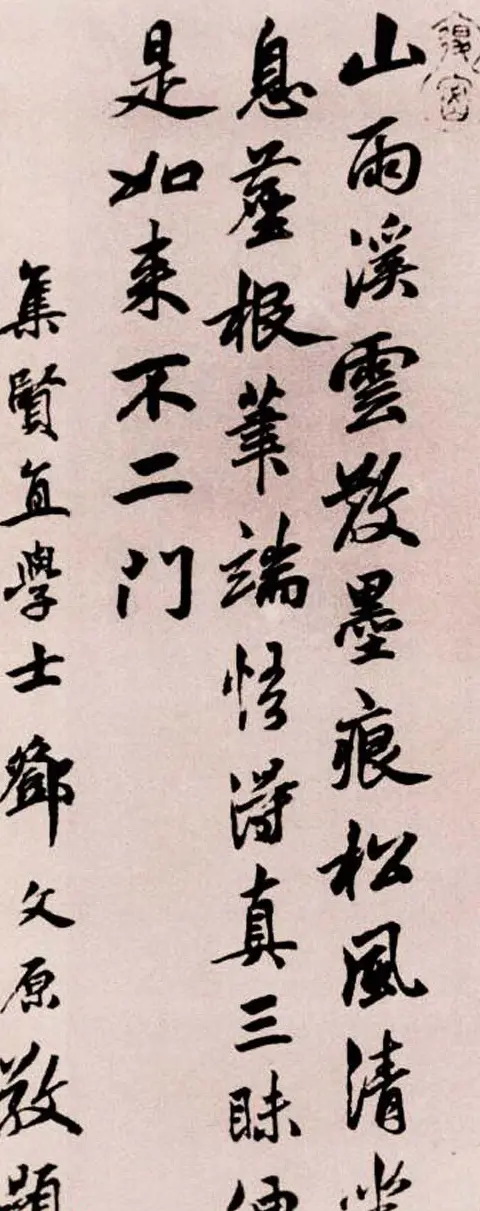 山雨溪雲散墨痕松風清坐
息塵根筆端悟得真三昧便
是如来不二門
集賢直學士鄧文原敬題